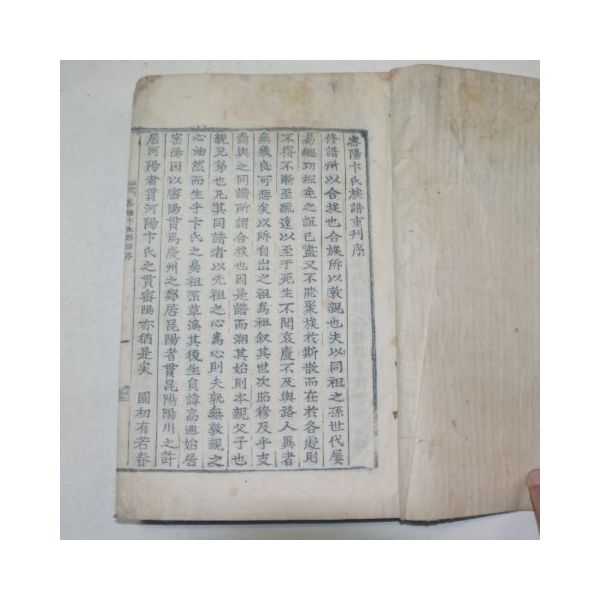 密陽卞氏族譜重刊序
修譜所以合族也合族所以敦親也夫以同祖之孫世代屢
易緦功袒免之誼已盡又不能聚族於斯散而在於各處則
不得不漸至疏遠以至于死生不聞哀慶不及與路人異者
無幾良可悲矣以所自出之祖爲祖叙其世次昭穆及乎支
裔與之同譜所謂合族也因是譜而溯其始則本親父子也
親兄弟也凡其同譜者以先祖之心爲心則夫孰無敦親之
心油然而生乎卞氏之奧祖氏草溪其後生員諱高迪始居
密陽因以密陽貫焉慶州之鄭居昆陽者貫昆陽陽川之許
居河陽者貫河陽卞氏之貫密陽亦猶是矣 國初有若春